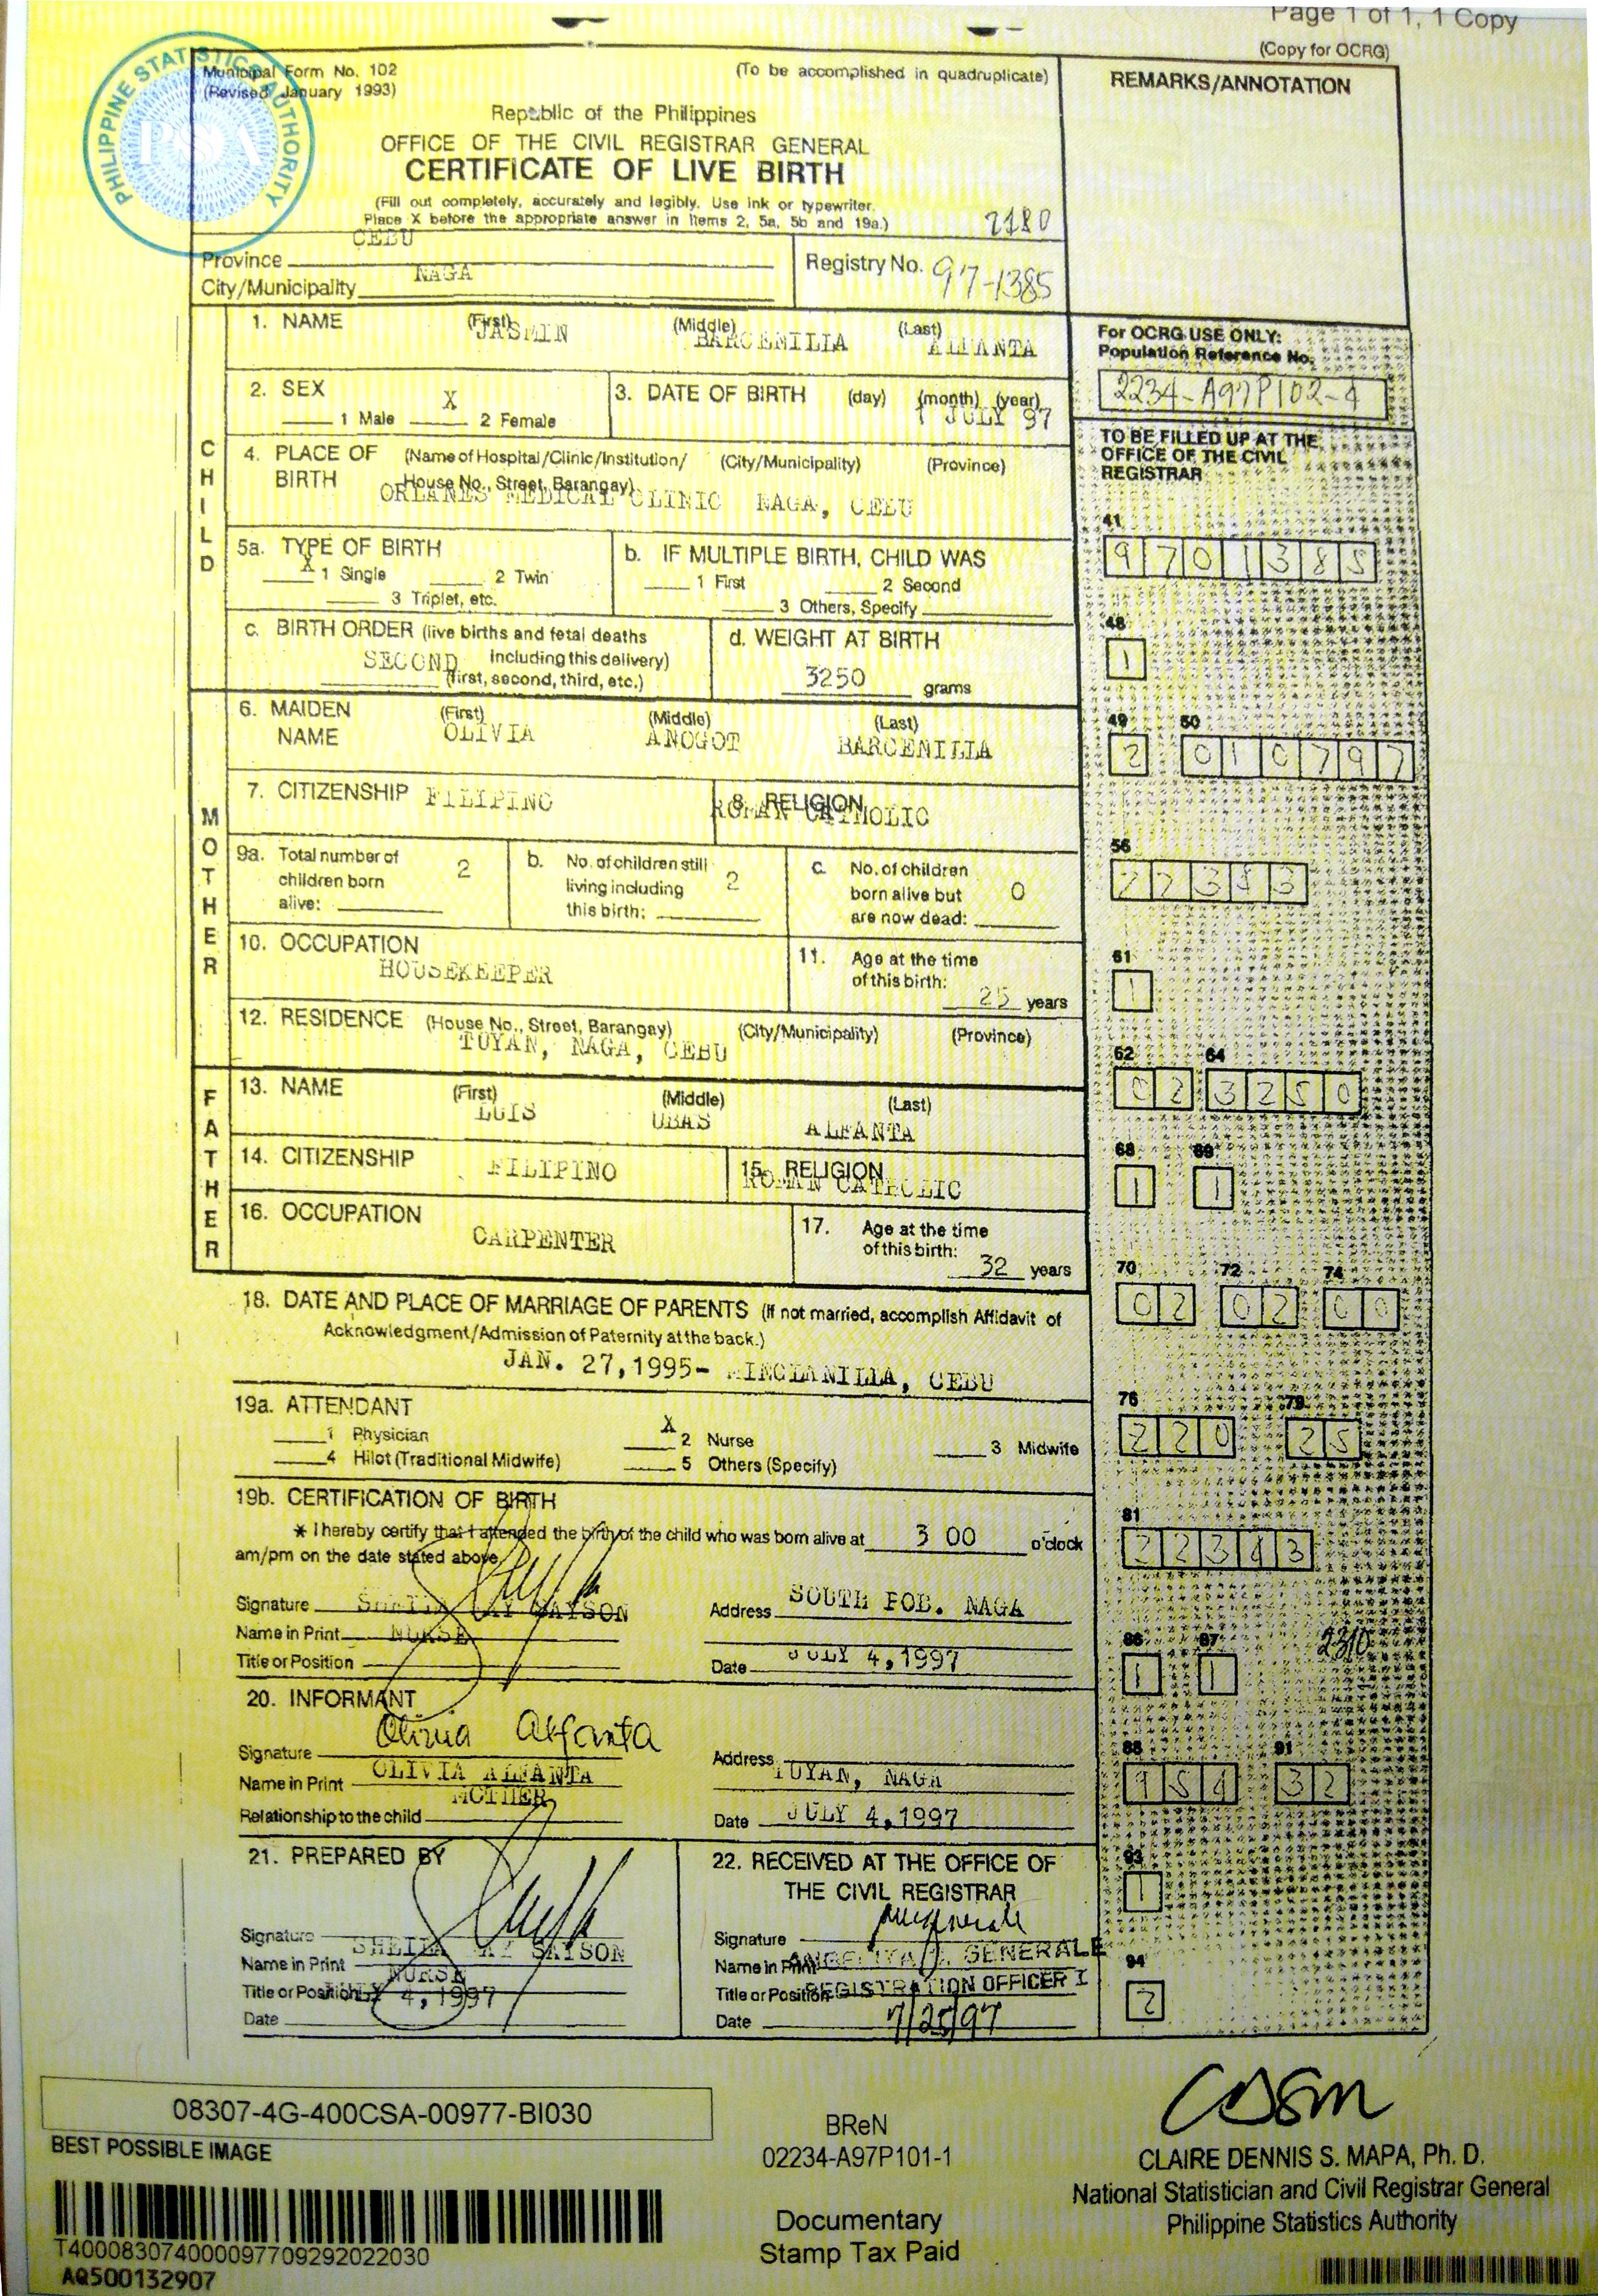 Page 1 of 1, 1 Copy
(Copy for OCRG)
PHILIPPINE STATISTICS AUTHORITY
PSA
Municipal Form No. 102
(Revised January 1993)
(To be accomplished in quadruplicate)
REMARKS/ANNOTATION
Republic of the Philippines
OFFICE OF THE CIVIL REGISTRAR GENERAL
CERTIFICATE OF LIVE BIRTH
(Fill out completely, accurately and legibly. Use ink or typewriter.
Place X before the appropriate answer in Items 2, 5a, 5b and 19a.)
2180
Province CEBU
City/Municipality NAGA
Registry No. 97-1385
CHILD
1. NAME (First) (Middle) (Last)
JASMIN BARCENILLA ALFANTA
For OCRG USE ONLY:
Population Reference No.
2234-A97P102-4
2. SEX
1 Male X 2 Female
3. DATE OF BIRTH (day) (month) (year)
1 JULY 97
TO BE FILLED UP AT THE
OFFICE OF THE CIVIL
REGISTRAR
4. PLACE OF BIRTH (Name of Hospital/Clinic/Institution/ (City/Municipality) (Province)
House No., Street, Barangay)
ORLANES MEDICAL CLINIC NAGA, CEBU
41
9701385
5a. TYPE OF BIRTH
X 1 Single 2 Twin
3 Triplet, etc.
b. IF MULTIPLE BIRTH, CHILD WAS
1 First 2 Second
3 Others, Specify
c. BIRTH ORDER (live births and fetal deaths
including this delivery)
SECOND
(first, second, third, etc.)
d. WEIGHT AT BIRTH
3250 grams
48
1
MOTHER
6. MAIDEN NAME (First) (Middle) (Last)
OLIVIA ANOGOT BARCENILLA
49 50
2 010797
7. CITIZENSHIP FILIPINO
8. RELIGION
ROMAN CATHOLIC
9a. Total number of children born alive: 2
b. No. of children still living including this birth: 2
c. No. of children born alive but are now dead: 0
56
22343
10. OCCUPATION
HOUSEKEEPER
11. Age at the time of this birth:
25 years
61
1
12. RESIDENCE (House No., Street, Barangay) (City/Municipality) (Province)
TUYAN, NAGA, CEBU
62 64
02 3250
FATHER
13. NAME (First) (Middle) (Last)
LUIS UBAS ALFANTA
14. CITIZENSHIP FILIPINO
15. RELIGION
ROMAN CATHOLIC
68 69
1 1
16. OCCUPATION
CARPENTER
17. Age at the time of this birth:
32 years
70 72 74
02 02 00
18. DATE AND PLACE OF MARRIAGE OF PARENTS (If not married, accomplish Affidavit of
Acknowledgment/Admission of Paternity at the back.)
JAN. 27, 1995- MINGLANILLA, CEBU
19a. ATTENDANT
1 Physician X 2 Nurse 3 Midwife
4 Hilot (Traditional Midwife) 5 Others (Specify)
76 79
220 25
19b. CERTIFICATION OF BIRTH
* I hereby certify that I attended the birth of the child who was born alive at 3 00 o'clock
am/pm on the date stated above.
81
22343
Signature
SHEILA SAYSON
Name in Print
NURSE
Title or Position
Address SOUTH POB. NAGA
Date JULY 4, 1997
86 87
1 1
2310
20. INFORMANT
Signature Olivia Alfanta
Name in Print OLIVIA ALFANTA
Relationship to the child MOTHER
Address TUYAN, NAGA
Date JULY 4, 1997
88 91
954 32
21. PREPARED BY
Signature
Name in Print SHEILA SAYSON
Title or Position NURSE
Date JULY 4, 1997
22. RECEIVED AT THE OFFICE OF
THE CIVIL REGISTRAR
Signature
Name in Print GENERALE
Title or Position REGISTRATION OFFICER I
Date 7/25/97
93
1
94
2
08307-4G-400CSA-00977-BI030
BEST POSSIBLE IMAGE
T400083074000097709292022030
AQ500132907
BReN
02234-A97P101-1
Documentary
Stamp Tax Paid
CLAIRE DENNIS S. MAPA, Ph. D.
National Statistician and Civil Registrar General
Philippine Statistics Authority